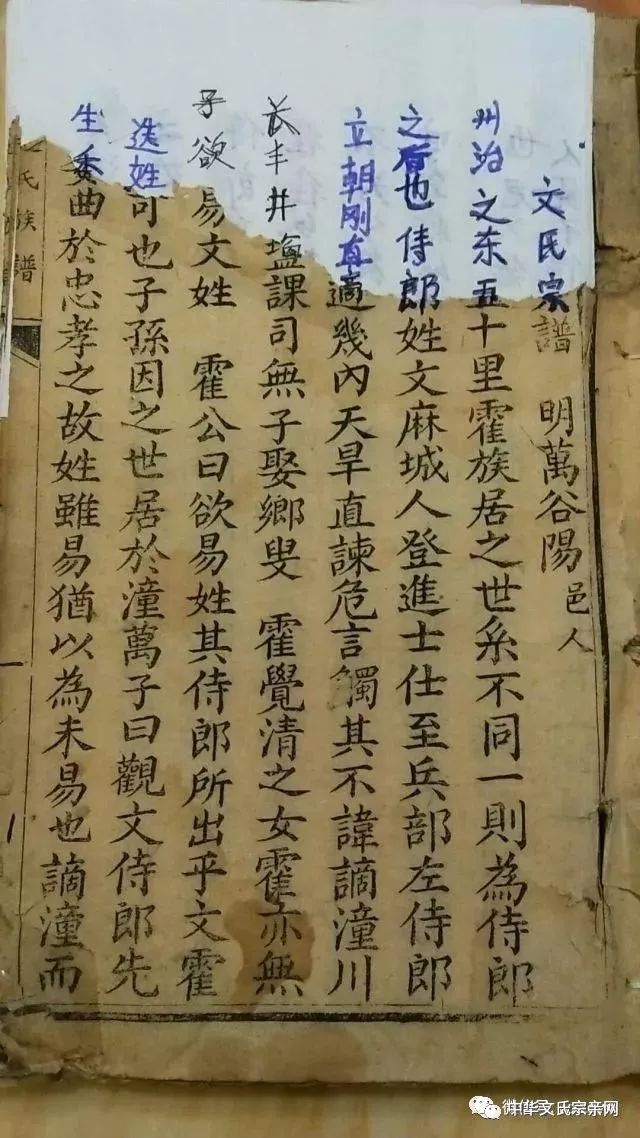 文氏宗譜 明萬谷陽 邑人
州治之东五十里霍族居之世系不同一則為侍郎
之后也侍郎姓文麻城人登進士仕至兵部左侍郎
立朝刚直適幾內天旱直諫危言觸其不諱謫潼川
长丰井塩課司無子娶鄉叟 霍覺清之女霍亦無
子欲易文姓 霍公曰欲易姓其侍郎所出乎文霍
迭姓可也子孫因之世居於潼萬子曰觀文侍郎先
生委曲於忠孝之故姓雖易猶以為未易也謫潼而
氏族譜
中华文氏宗亲网